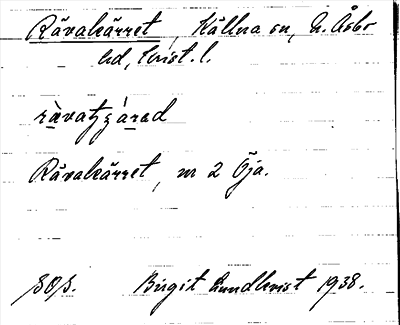 Rävakärret, Källna sn, N. Åsbo
hd, Krist. l.
Rävakärret, nr 2 Öja.
SOs. Birgit Lundkvist 1938.